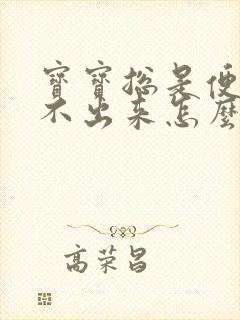 寶寶總是便
不出來怎麼
高荣昌